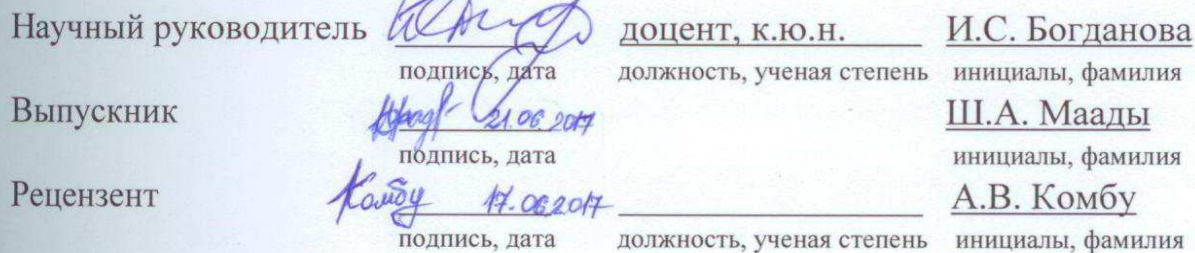 Научный руководитель доцент, к.ю.н. И.С. Богданова
подпись, дата должность, ученая степень инициалы, фамилия
Выпускник 21.06.2017 Ш.А. Маады
подпись, дата инициалы, фамилия
Рецензент Комбу 17.06.2017 А.В. Комбу
подпись, дата должность, ученая степень инициалы, фамилия